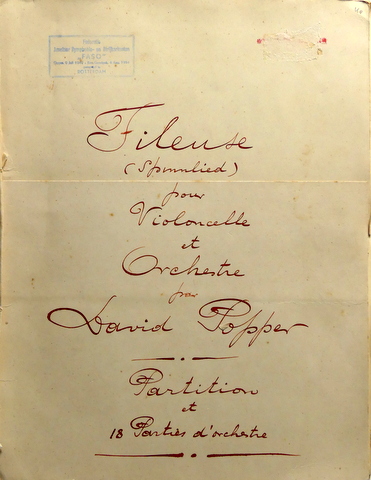 Fileuse
(Spinnlied)
pour
Violoncelle
et
Orchestre
par
David Popper
Partition
et
18 Parties d'orchestre